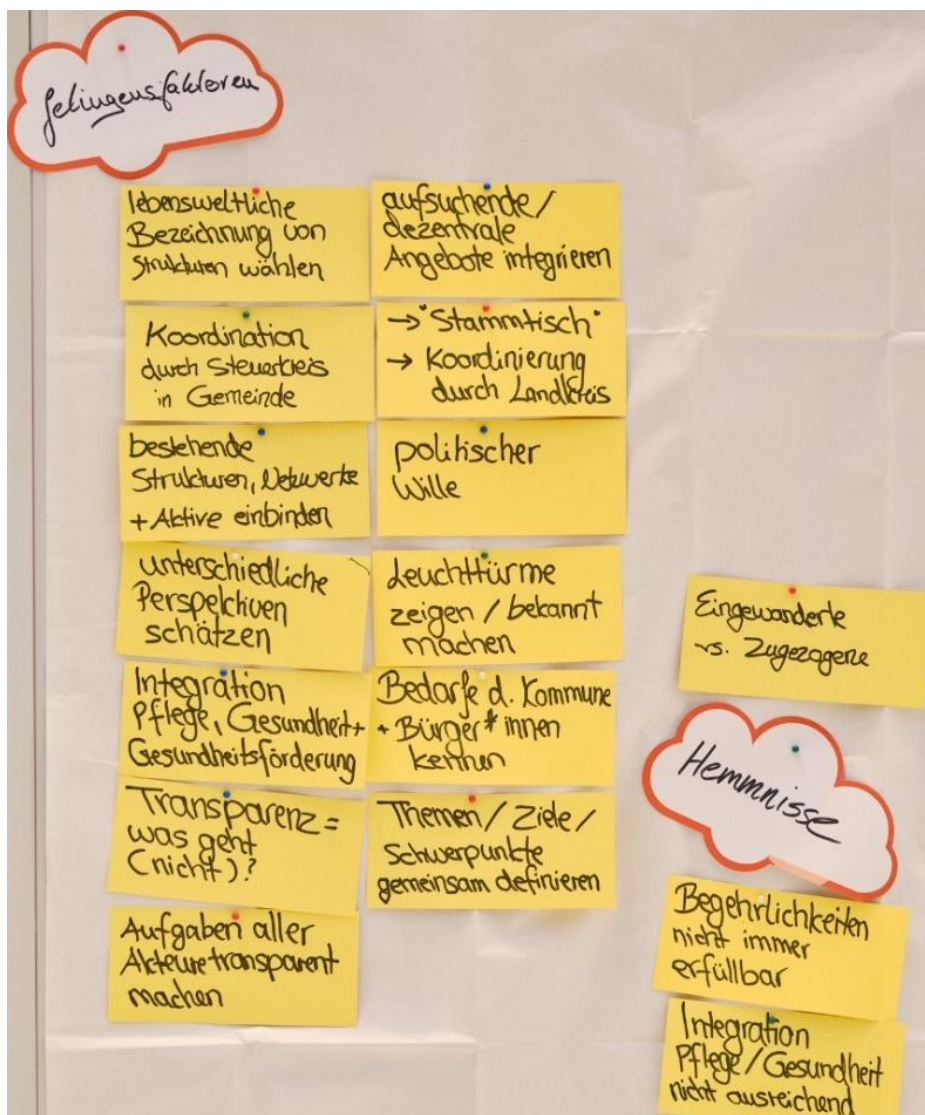 Gelingensfaktoren
lebensweltliche
Bezeichnung von
Strukturen wählen
Koordination
durch Steuerkreis
in Gemeinde
bestehende
Strukturen, Netzwerke
+ Aktive einbinden
unterschiedliche
Perspektiven
schätzen
Integration
Pflege, Gesundheit +
Gesundheitsförderung
Transparenz =
was geht
(nicht)?
Aufgaben aller
Akteure transparent
machen
aufsuchende/
dezentrale
Angebote integrieren
→ "Stammtisch"
→ Koordinierung
durch Landkreis
politischer
Wille
Leuchttürme
zeigen / bekannt
machen
Bedarfe d. Kommune
+ Bürger*innen
kennen
Themen / Ziele /
Schwerpunkte
gemeinsam definieren
Eingewanderte
vs. Zugezogene
Hemmnisse
Begehrlichkeiten
nicht immer
erfüllbar
Integration
Pflege / Gesundheit
nicht ausreichend